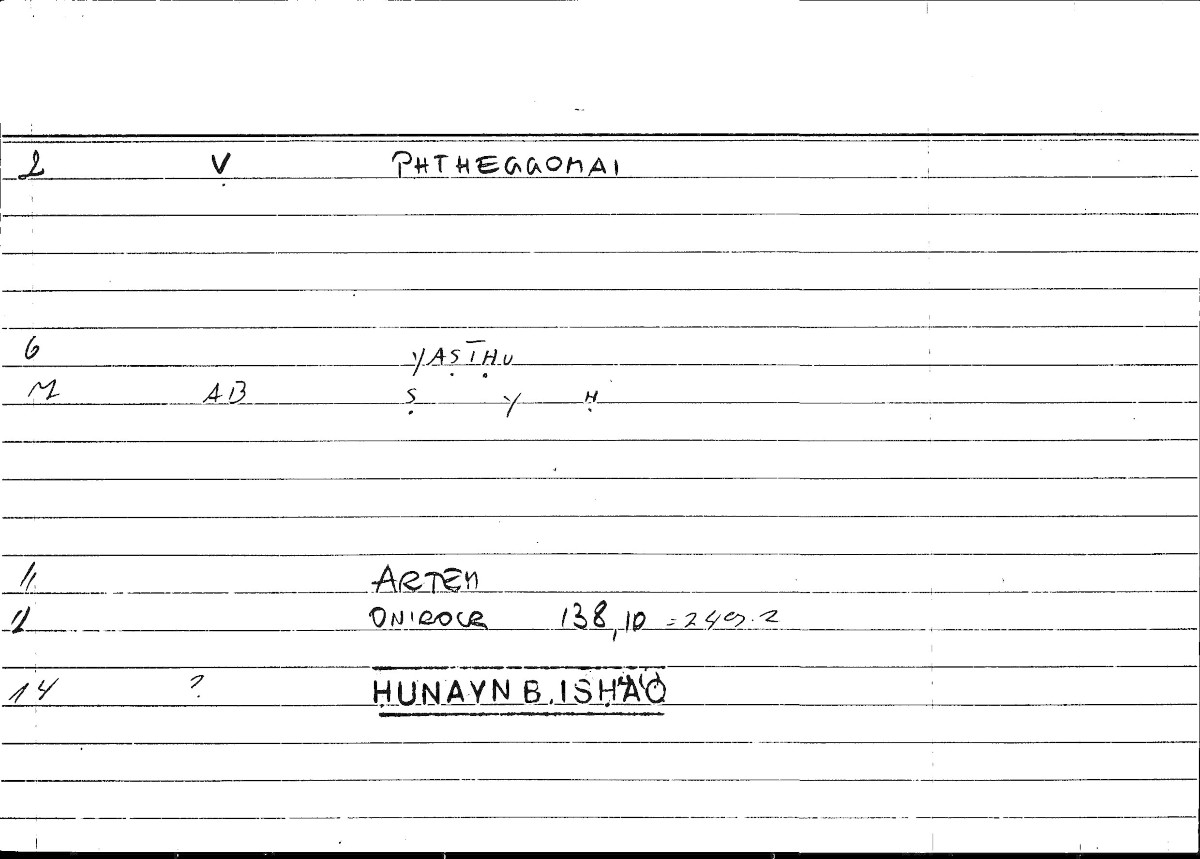 2 V PHTHEGGOMAI
6 YAṢĪḤU
M AB Ṣ Y Ḥ
11 ARTEM
12 ONIROCR 138,10 = 249.2
14 ? ḤUNAYN B. ISḤĀQ